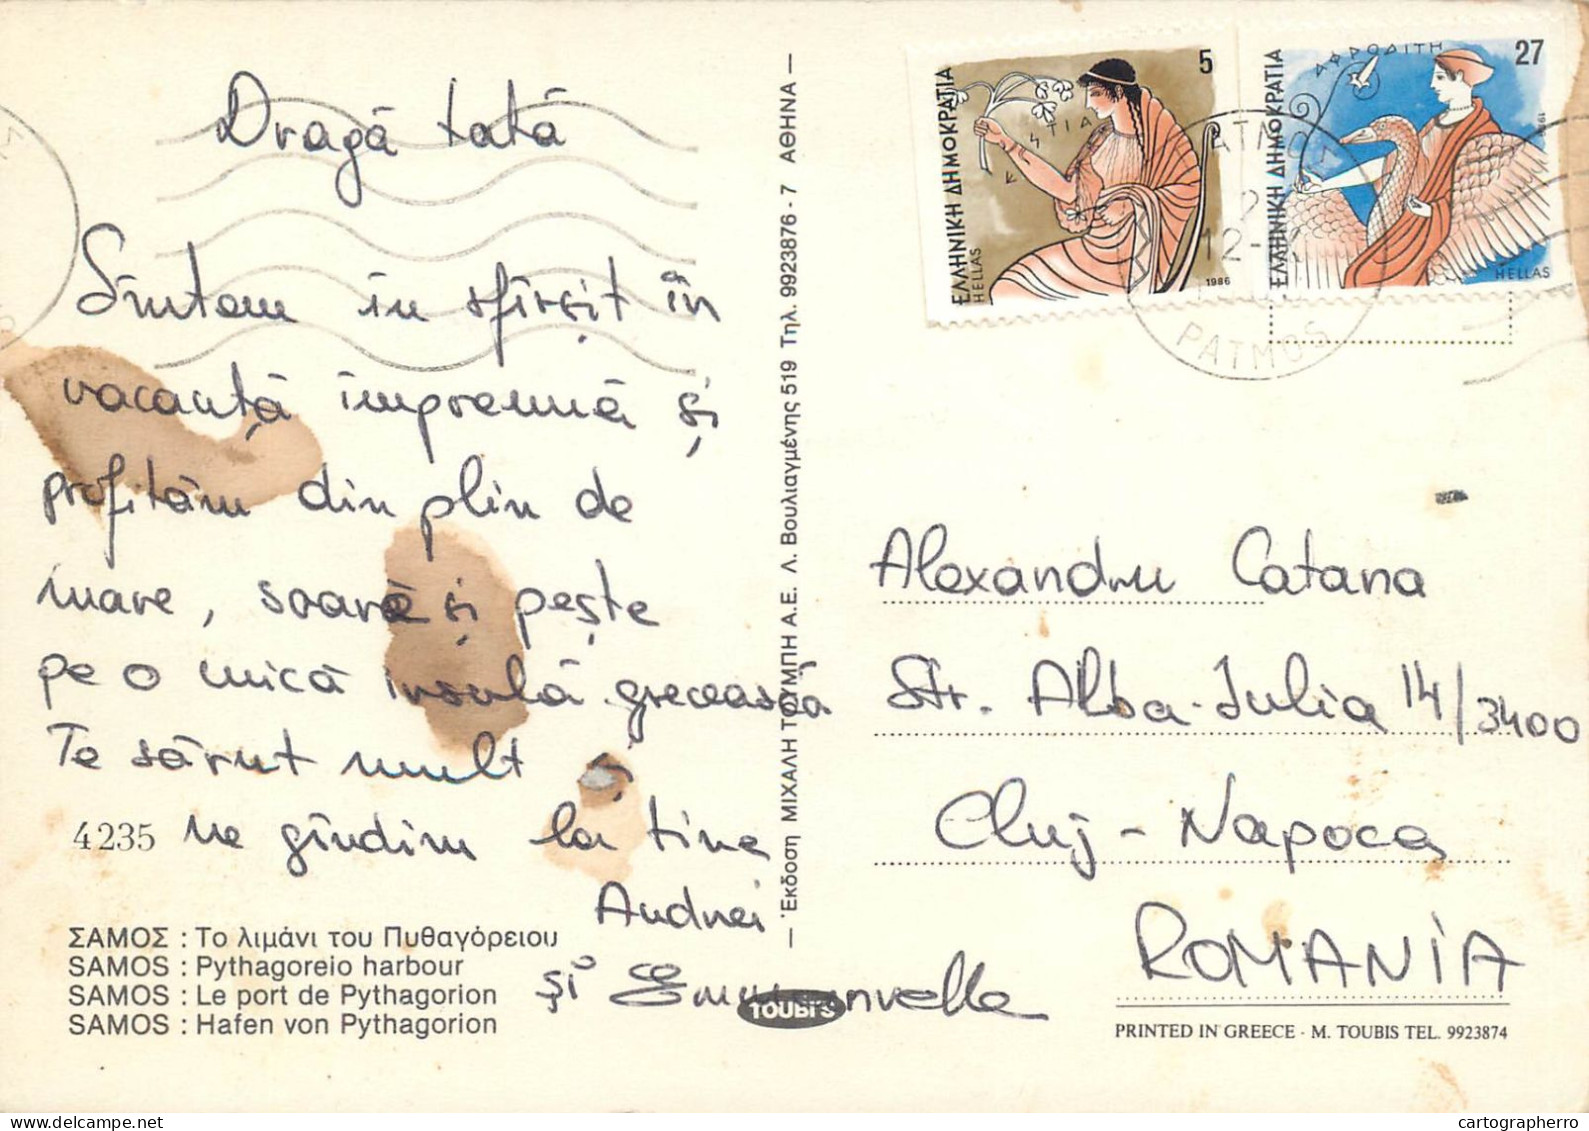 Dragă tată
Sîntem în sfîrșit în
vacanță împreună și
profităm din plin de
mare, soare și pește
pe o mică insulă grecească
Te sărut mult și
ne gîndim la tine
Andrei
și Emmanuelle
4235
ΣΑΜΟΣ : Το λιμάνι του Πυθαγόρειου
SAMOS : Pythagoreio harbour
SAMOS : Le port de Pythagorion
SAMOS : Hafen von Pythagorion
Έκδοση ΜΙΧΑΛΗ ΤΟΥΜΠΗ Α.Ε. Λ. Βουλιαγμένης 519 Τηλ. 9923876 - 7 ΑΘΗΝΑ
TOUBI'S
ΕΛΛΗΝΙΚΗ ΔΗΜΟΚΡΑΤΙΑ
HELLAS
5
1986
ΕΛΛΗΝΙΚΗ ΔΗΜΟΚΡΑΤΙΑ
ΑΦΡΟΔΙΤΗ
27
HELLAS
PATMOS
Alexandru Catana
Str. Alba-Iulia 14/3400
Cluj-Napoca
ROMANIA
PRINTED IN GREECE - M. TOUBIS TEL. 9923874
cartographerro